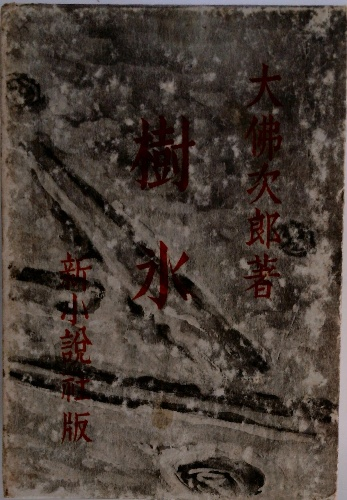 大佛次郎著
樹氷
新小説社版